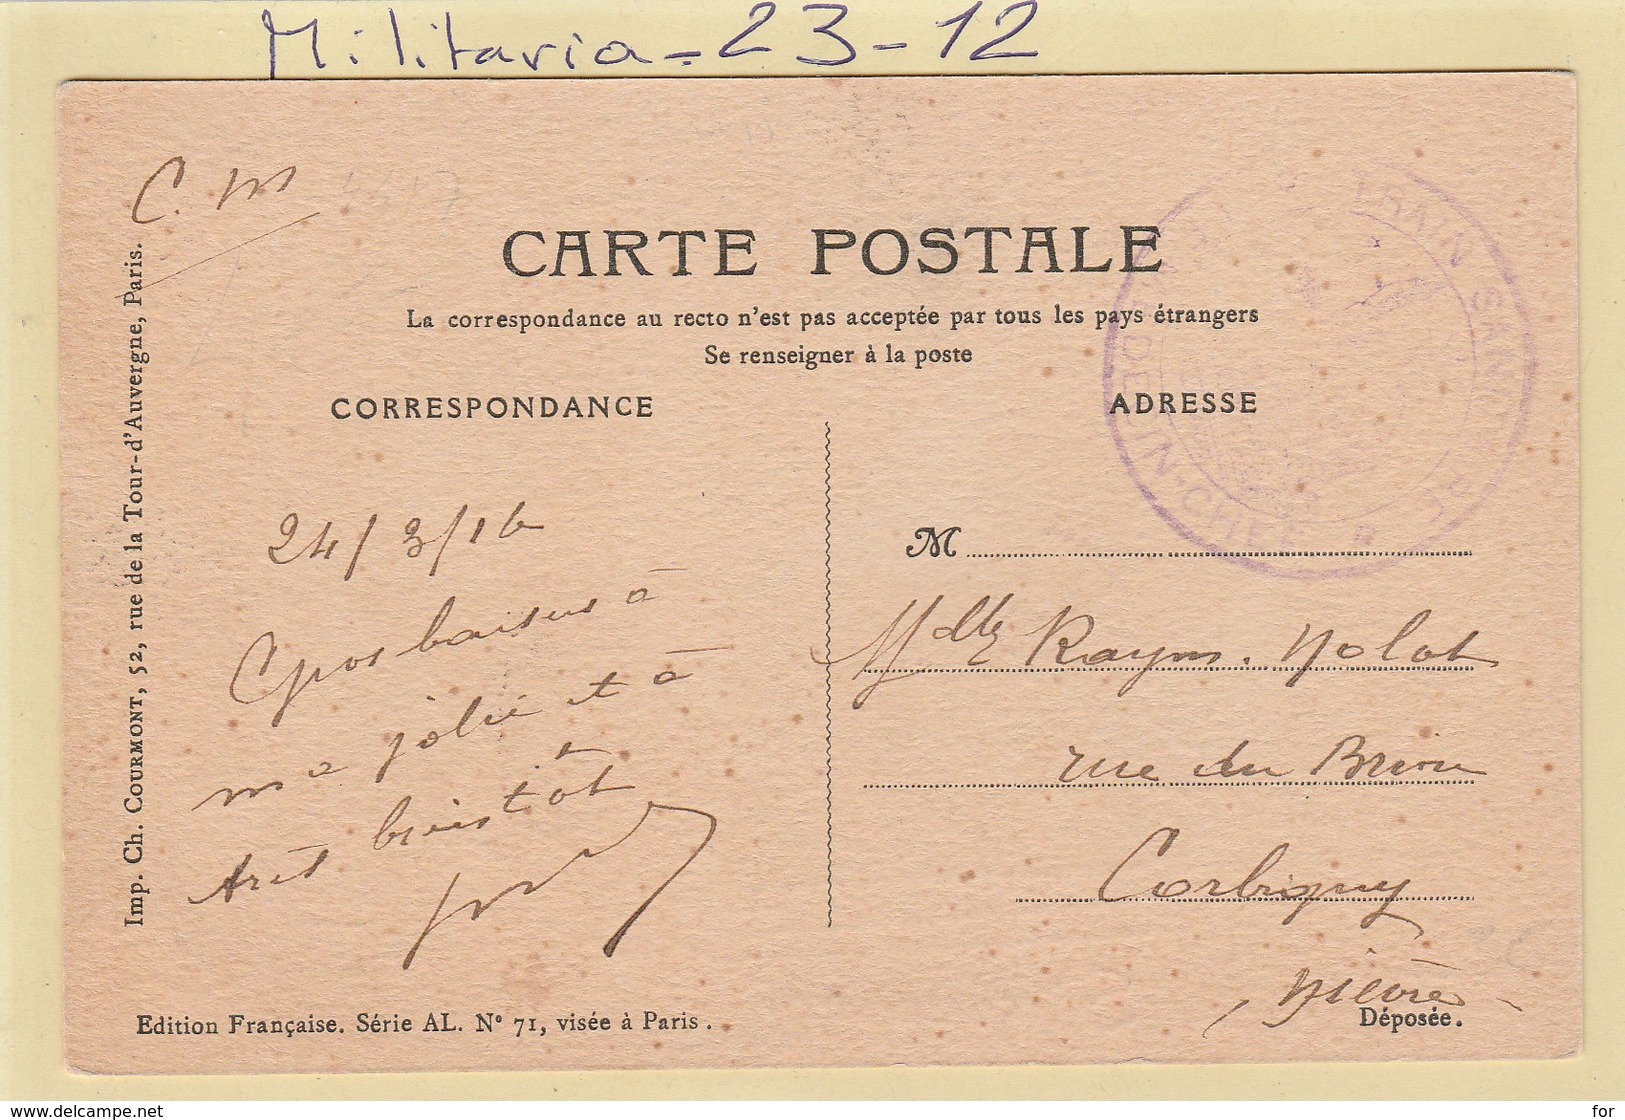 Militaria - 23 - 12
C. M
CARTE POSTALE
La correspondance au recto n'est pas acceptée par tous les pays étrangers
Se renseigner à la poste
CORRESPONDANCE
ADRESSE
TRAIN SANITAIRE
MÉDECIN-CHEF
24/3/16
Gros baisers à
ma jolie et à
très bientôt
M
Mlle Raym. Nolot
rue du
Corbigny
Nièvre
Imp. Ch. COURMONT, 52, rue de la Tour-d'Auvergne, Paris.
Edition Française. Série AL. N° 71, visée à Paris.
Déposée.
www.delcampe.net
for